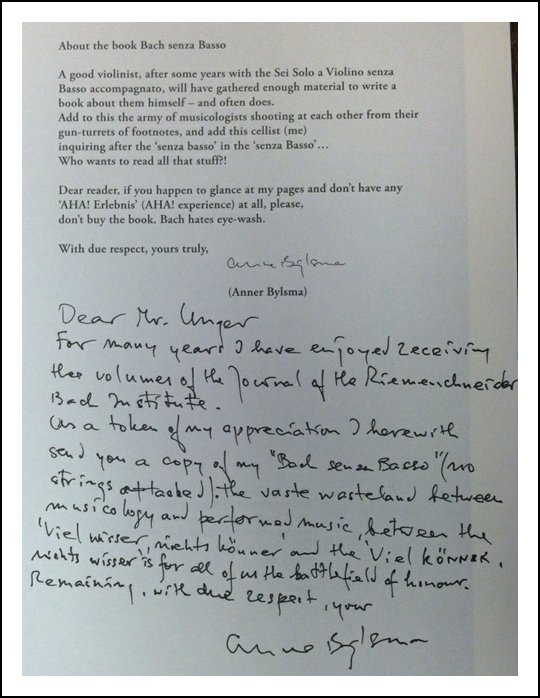 About the book Bach senza Basso
A good violinist, after some years with the Sei Solo a Violino senza
Basso accompagnato, will have gathered enough material to write a
book about them himself – and often does.
Add to this the army of musicologists shooting at each other from their
gun-turrets of footnotes, and add this cellist (me)
inquiring after the ‘senza basso’ in the ‘senza Basso’…
Who wants to read all that stuff?!
Dear reader, if you happen to glance at my pages and don’t have any
‘AHA! Erlebnis’ (AHA! experience) at all, please,
don’t buy the book. Bach hates eye-wash.
With due respect, yours truly,
Anner Bylsma
(Anner Bylsma)
Dear Mr. Unger
For many years I have enjoyed receiving
thee volumes of the Journal of the Riemenschneider
Bach Institute.
As a token of my appreciation I herewith
send you a copy of my "Bach senza Basso" (no
strings attached). The vaste wasteland between
musicology and performed music, between the
'Viel wisser, nichts könner' and the 'Viel könner,
nichts wisser' is for all of us the battlefield of honour.
Remaining, with due respect, your
Anner Bylsma